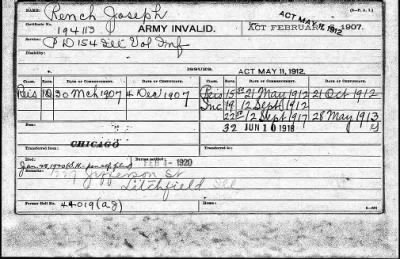 NAME: Rench Joseph
194113 ARMY INVALID. ACT FEBRUARY 6, 1907. ACT MAY 11, 1912
Service: D 154 Ill Vol Inf
Disability:
ISSUES. ACT MAY 11, 1912.
CLASS. RATE. DATE OF COMMENCEMENT. DATE OF CERTIFICATE. CLASS. RATE. DATE OF COMMENCEMENT. DATE OF CERTIFICATE.
Reis 30 Mch 1907 4 Dec 1907 Reis 21 May 1912 21 Oct 1912
Inc 19 12 Sept 1912
12 Sept 1917 28 May 1913
32 JUN 10 1918
Transferred from: CHICAGO
Transferred to:
Died: FEB 4 - 1920
Remarks: Jefferson St
Litchfield Ill
Former Roll No. 44019